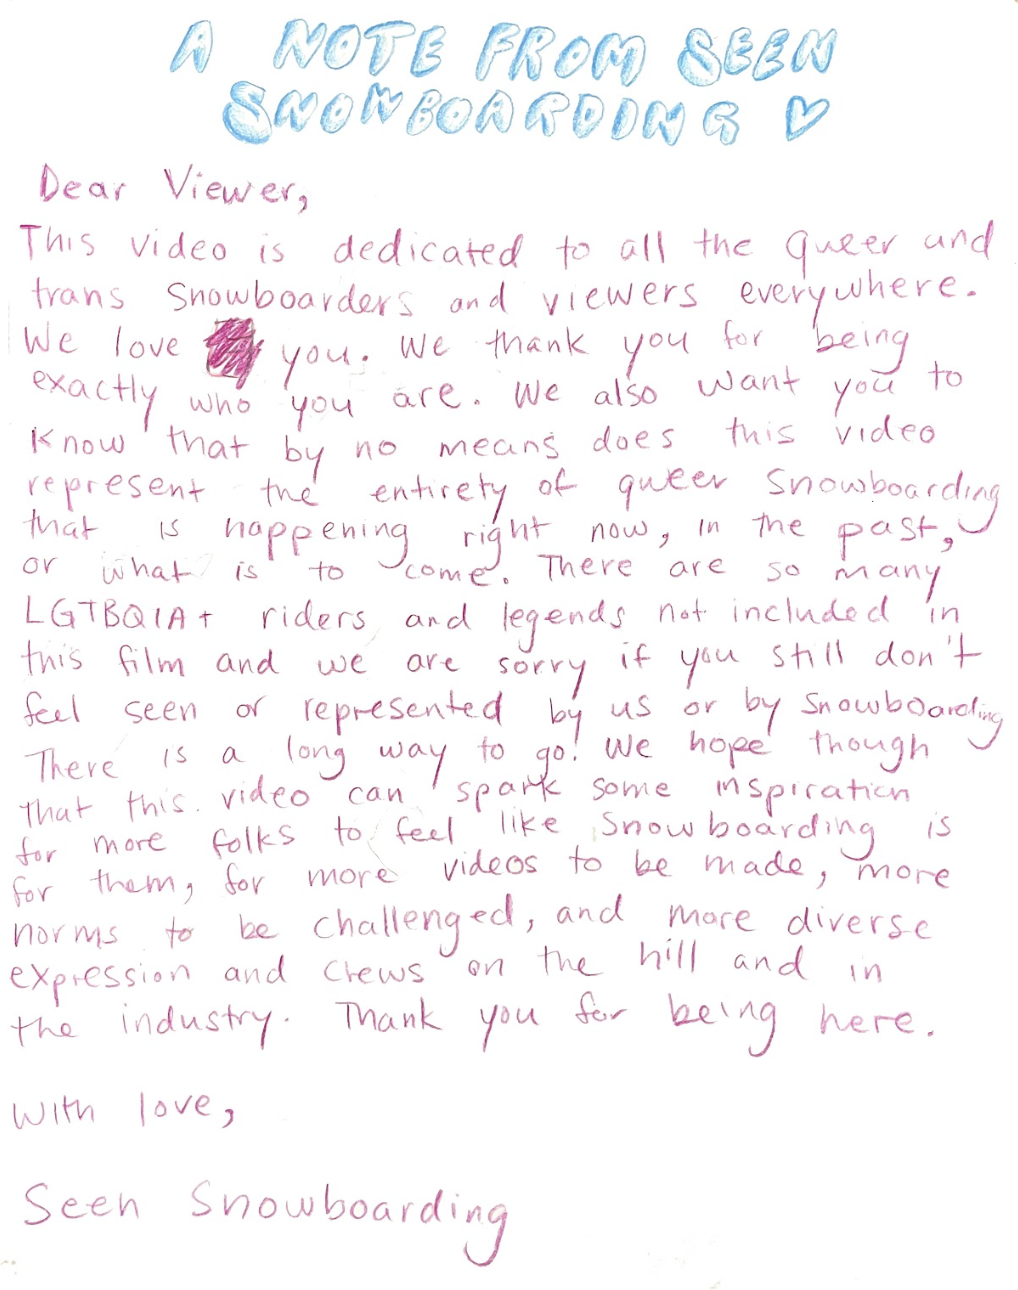 A NOTE FROM SEEN
SNOWBOARDING
Dear Viewer,
This video is dedicated to all the queer and
trans snowboarders and viewers everywhere.
We love you. We thank you for being
exactly who you are. We also want you to
know that by no means does this video
represent the entirety of queer snowboarding
that is happening right now, in the past,
or what is to come. There are so many
LGTBQIA+ riders and legends not included in
this film and we are sorry if you still don't
feel seen or represented by us or by snowboarding
There is a long way to go! We hope though
that this video can spark some inspiration
for more folks to feel like snowboarding is
for them, for more videos to be made, more
norms to be challenged, and more diverse
expression and crews on the hill and in
the industry. Thank you for being here.
With love,
Seen Snowboarding